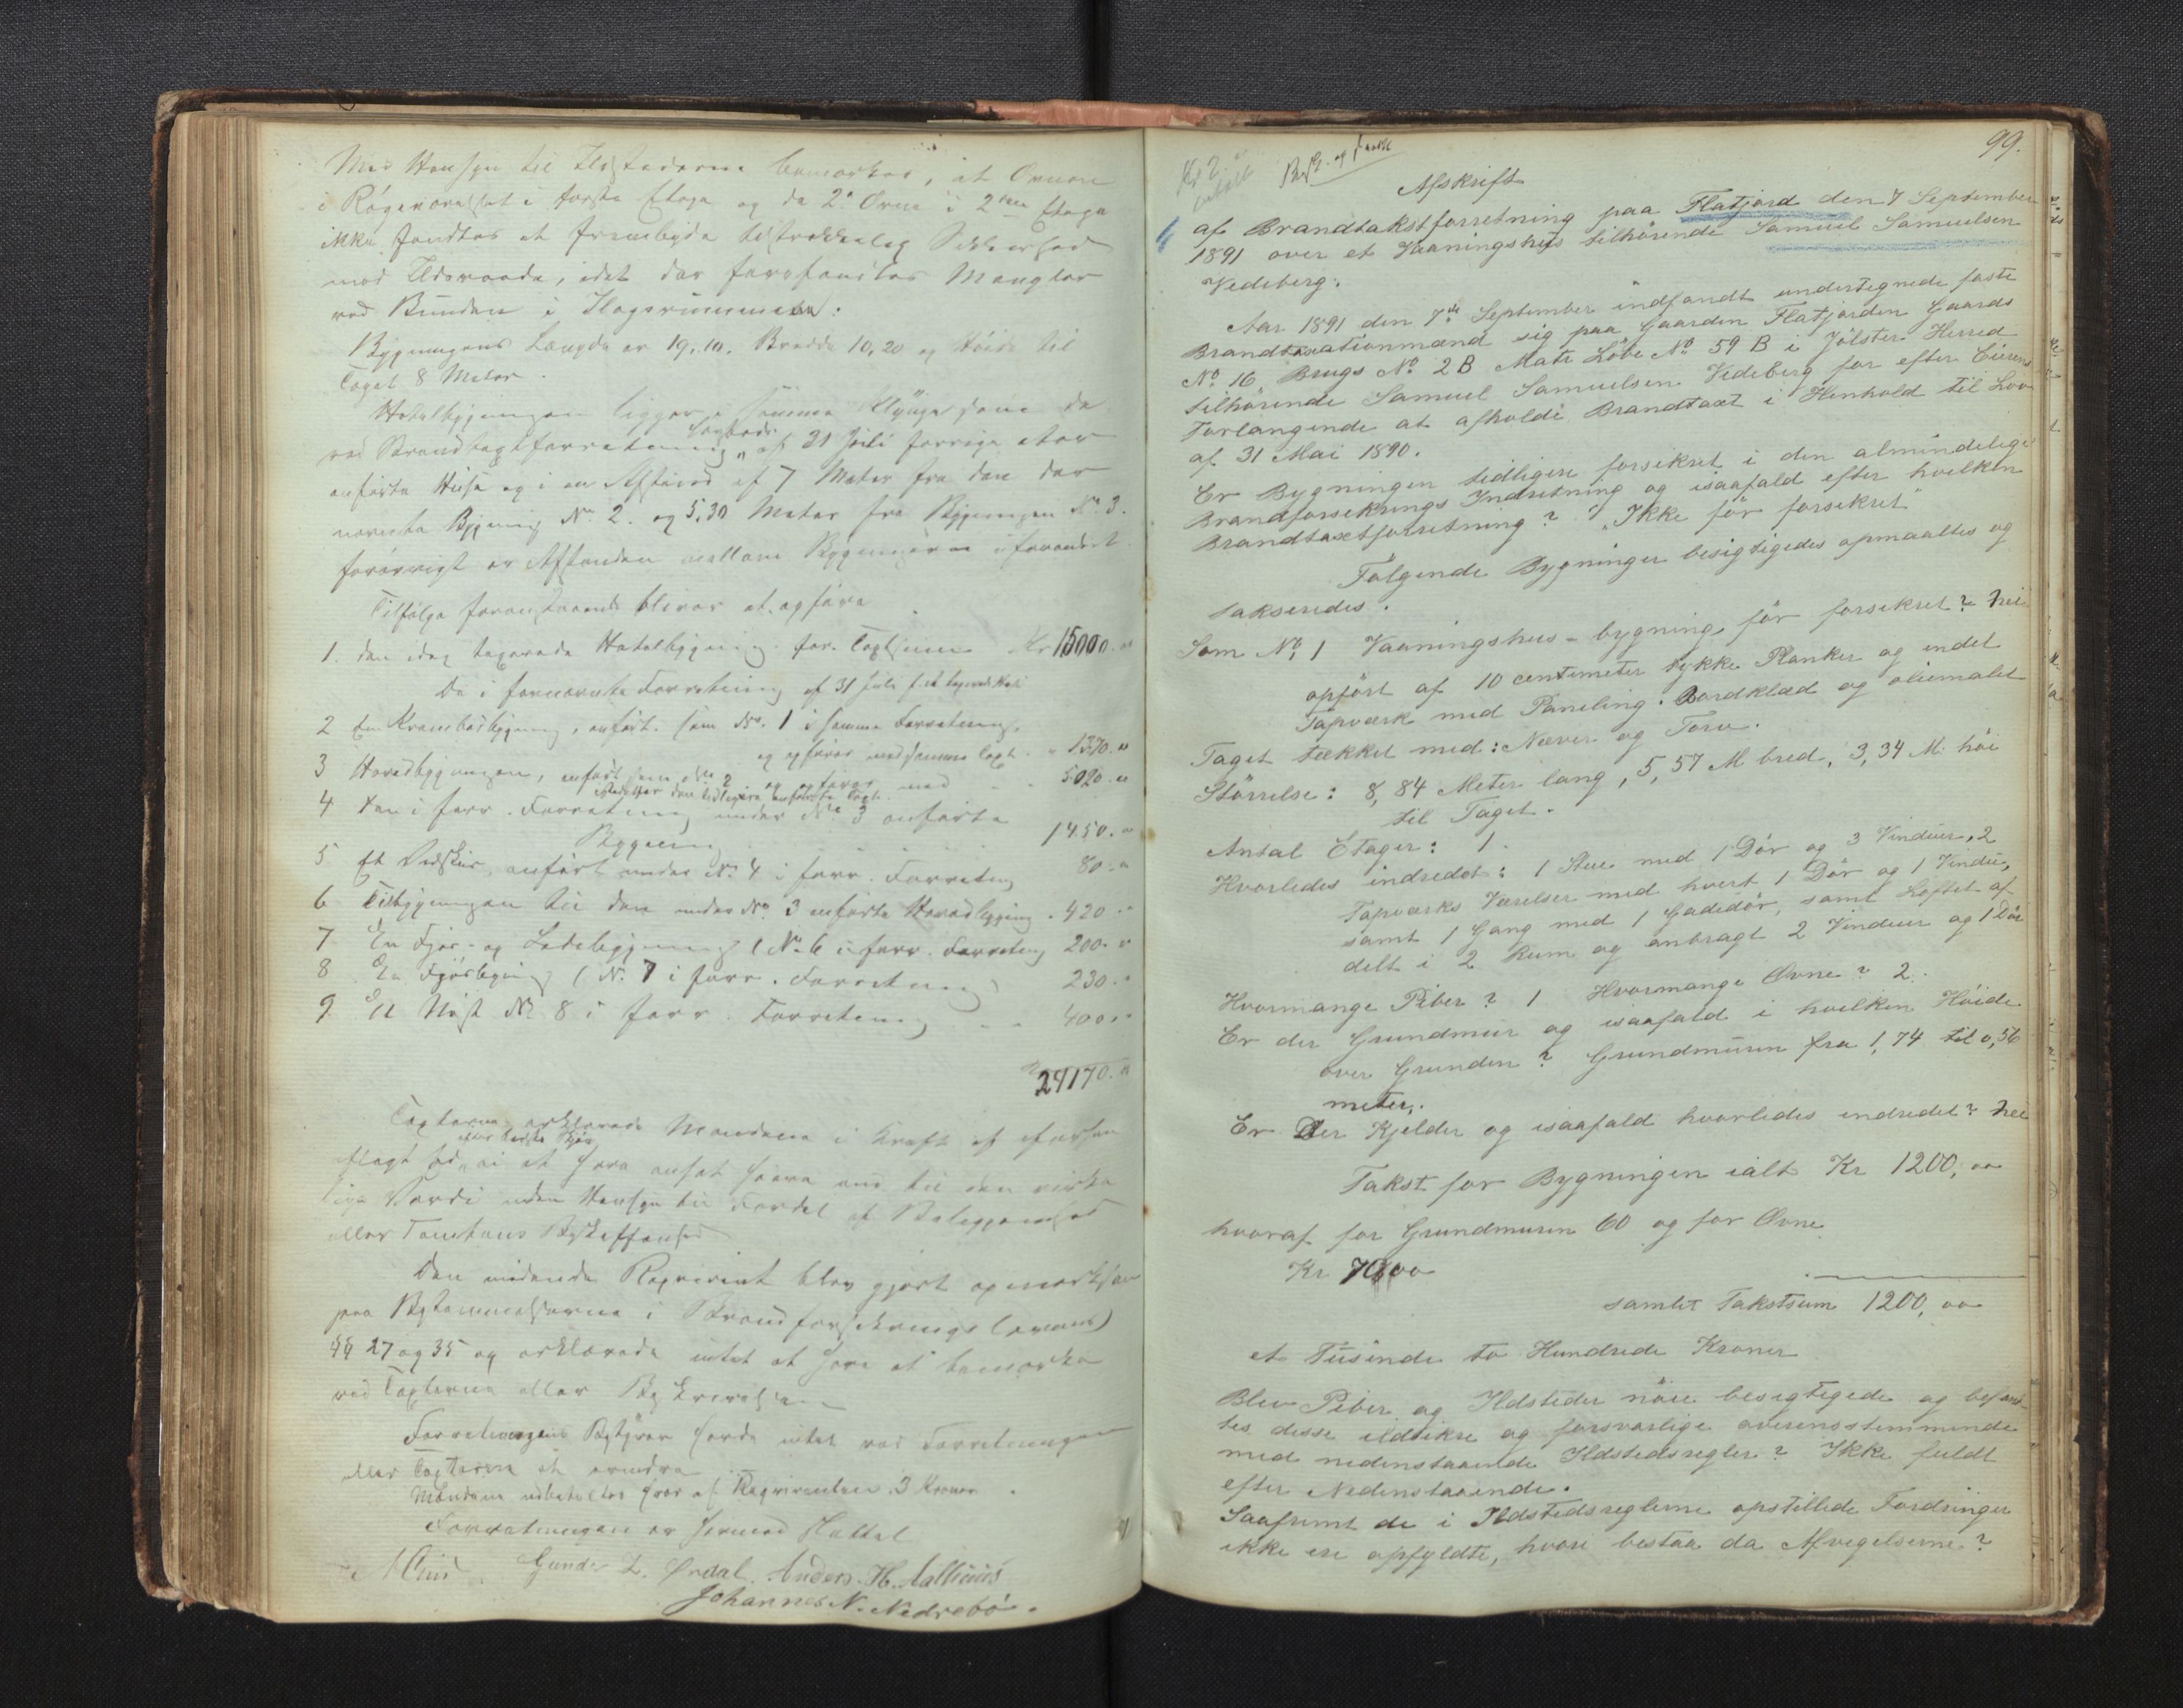 Med Hensyn til Ildstederne bemærkes, at Ovnen
i Røgeværelset i første Etage og de 2de Ovne i 2den Etage
ikke fandtes at frembyde tilstrækkelig Sikkerhed
mod Ildsvaade, idet der forefandtes Mangler
ved Bunden i
Bygningens Længde er 19,10. Bredde 10,20 og Høide til
Taget 8 Meter.
Hotelbygningen ligger i samme Klynge som de
ved Brandtaxtforretning af 31 Juli forrige Aar
anførte Huse og i en Afstand af 7 Meter fra den der
nævnte Bygning No. 2. og 5,30 Meter fra Bygningen No. 3.
forøvrigt er Afstanden mellem Bygningerne uforandret
Tilfølge foranstaaende bliver at opføre
1. den idag taxerede Hotelbygning for Taxtsum Kr 15000. "
De i fornævnte Forretning af 31 Juli f. A. taxerede Huse
2 En Krambodbygning, anført som No. 1 i samme Forretning,
og opføres med samme Taxt " 1370. "
3 Hovedbygningen, anført som No 2 og opføres med 5020. "
4 Den i forr. Forretning under No 3 anførte
Bygning 1450. "
5 Et Vedskur, anført under No. 4 i forr. Forretning 80. "
6 Tilbygningen til den under No. 3 anførte Hovedbygning . 420 . "
7 En Fjøs- og Ladebygning (No. 6 i forr. Forretning 200. "
8 En Fjøsbygning (No. 7 i forr. Forretning) 230. "
9 Et Nøst No 8 i forr. Forretning 400. "
24170. "
Taxterne erklærede Mændene i Kraft af aflagt Ed
efter bedste Skjøn
ei at have ansat høiere end til den virke
lige Værdi uden Hensyn til Fordel af Beliggenhed
eller Tomtens Beskaffenhed
Den mødende Rekvirent blev gjort opmærksom
paa Bestemmelserne i Brandforsikringslovens
§§ 27 og 35 og erklærede intet at have at bemærke
ved Taxterne eller Beskrivelsen
Forretningens Bestyrer havde intet ved Forretningen
eller Taxterne at erindre
Mændene udbetaltes hver af Rekvirenten 3 Kroner .
Forretningen er hermed sluttet
Gunder L. Årdal. Anders. H.
Johannes N. Nedrebö.
99.
Kr 2
Afskrift
af Brandtakstforretning paa Flatjord den 7 September
1891 over et Vaaningshus tilhørende Samuel Samuelsen
Vedeberg.
Aar 1891 den 7de September indfandt undertegnede faste
Brandtaxationmænd sig paa Gaarden Flatjorden Gaards
No. 16, Brugs No. 2 B Matr Löbe No 59 B i Jölster Herred
tilhørende Samuel Samuelsen Vedeberg for efter Eierens
Forlangende at afholde Brandtaxt i Henhold til Lov
af 31 Mai 1890.
Er Bygningen tidligere forsikret i den almindelige
Brandforsikrings Indretning og isaafald efter hvilken
Brandtaxtforretning? "Ikke för forsikret"
Følgende Bygninger besigtigedes opmaaltes og
takseredes.
Som No. 1 Vaaningshus-bygning för forsikret? nei
opfört af 10 centimeter tykke Planker og endel
Tapværk med Paneling. Bordklæd og oliemalet
Taget tækket med: Næver og Torv.
Størrelse: 8,84 Meter lang, 5,57 M. bred, 3,34 M. höi
til Taget.
Antal Etager: 1.
Hvorledes indredet: 1 Stue med 1 Dör og 3 Vinduer, 2
Tapværks Værelser med hvert 1 Dör og 1 Vindu,
samt 1 Gang med 1 Gadedör, samt Loftet af
delt i 2 Rum og anbragt 2 Vinduer og 1 Dör
Hvormange Piber? 1 Hvormange Ovne? 2.
Er der Grundmur og isaafald i hvilken Höide
over Grunden? Grundmuren fra 1,74 til 0,56
meter.
Er Der Kjelder og isaafald hvorledes indredet? nei
Takst for Bygningen ialt Kr 1200,00
hvoraf for Grundmuren 60 og for Ovne
Kr 70,00
samlet Takstsum 1200,00
et Tusinde to Hundrede Kroner
Blev Piber og Ildsteder nöie besigtigede og befand
tes disse ildsikre og forsvarlige overensstemmende
med nedenstaaende Ildstedsregler? Ikke fuldt
efter Nedenstaaende.
Saafremt de i Ildstedsreglerne opstillede Fordringer
ikke ere opfyldte, hvori bestaa da Afvigelserne?